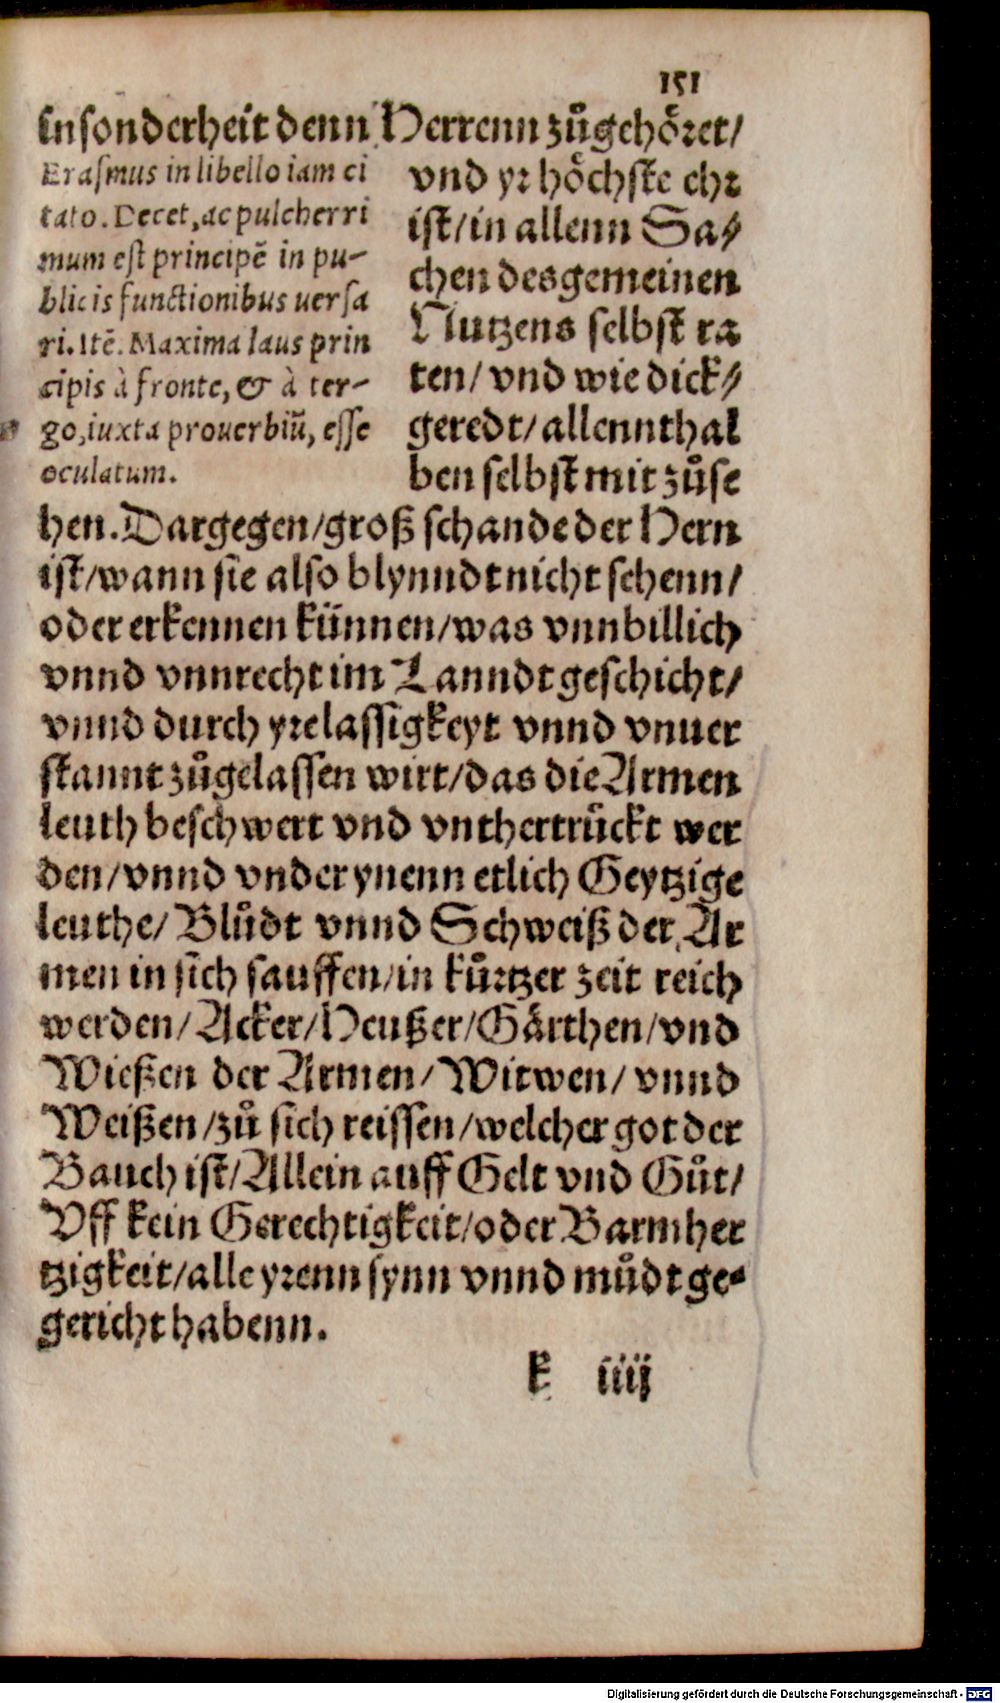 151
insonderheit denn Herrenn zůgehöret/
Erasmus in libello iam ci
tato. Decet, ac pulcherri
mum est principē in pu-
blicis functionibus uersa
ri. Itē. Maxima laus prin
cipis à fronte, & à ter-
go, iuxta prouerbiū, esse
oculatum.
vnd yr höchste ehr
ist/in allenn Sa⸗
chen des gemeinen
Nutzens selbst ra
ten/ vnd wie dick⸗
geredt/allennthal
ben selbst mit zůse
hen. Dargegen/groß schande der Hern
ist/wann sie also blynndt nicht sehenn/
oder erkennen künnen/was vnnbillich
vnnd vnnrecht im Lanndt geschicht/
vnnd durch yre lassigkeyt vnnd vnuer
stannt zůgelassen wirt/das die Armen
leuth beschwert vnd vnthertrückt wer
den/vnnd vnder ynenn etlich Geytzige
leuthe/ Blůdt vnnd Schweiß der Ar
men in sich sauffen/in kůrtzer zeit reich
werden/Acker/Heußer/Gärthen/vnd
Wießen der Armen/Witwen/ vnnd
Weißen/zů sich reissen/welcher got der
Bauch ist/Allein auff Gelt vnd Gůt/
Vff kein Gerechtigkeit/oder Barmher
tzigkeit/alle yrenn synn vnnd můdt ge⸗
gericht habenn.
k iiij
Digitalisierung gefördert durch die Deutsche Forschungsgemeinschaft - DFG